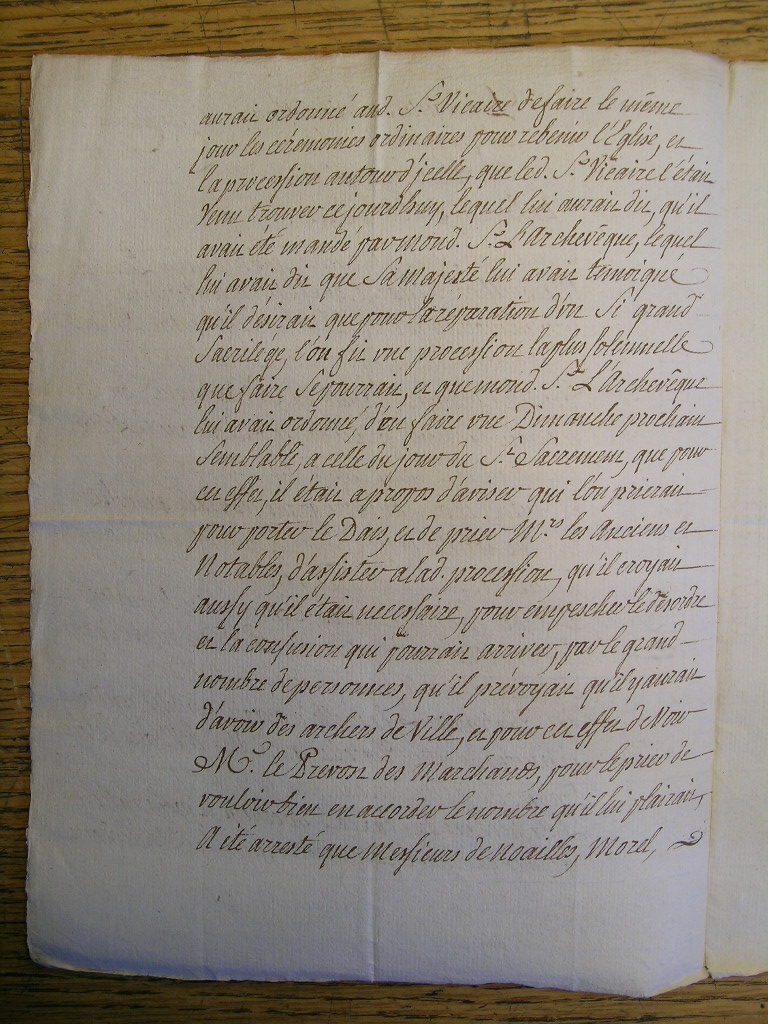 aurait ordonné aud. Sr. Vicaire de faire le même
jour les cérémonies ordinaires pour rebenir l'Eglise, et
la procession autour d'jcelle, que led. Sr. Vicaire l'était
Venu trouver cejourdhuy, lequel lui aurait dit, qu'il
avait été mandé par mond. Sr. L'Archevêque, lequel
lui avait dit que Sa majesté lui avait témoigné
qu'il désirait que pour la réparation d'un Si grand
Sacrilége, l'on fit une procession la plus solennelle
que faire Se pourrait, et que mond. Sr. L'Archevêque
lui avait ordonné, d'en faire une Dimanche prochain
Semblable, a celle du jour du St. Sacrement, que pour
cet effet, il était apropos d'aviser qui l'on prierait
pour porter le Dais, et de prier Mrs. les Anciens et
Notables, d'assister a lad. procession, qu'il croyait
aussy qu'il était necessaire, pour empescher le désordre
et la confusion qui pourrait arriver, par le grand
nombre de personnes, qu'il prévoyait qu'il y aurait
d'avoir des archers de Ville, et pour cet effet de Voir
Mr. le Prevost des Marchands, pour le prier de
vouloir bien en accorder le nombre qu'il lui plairait,
A été arresté que Messieurs de Noailles, Morel,